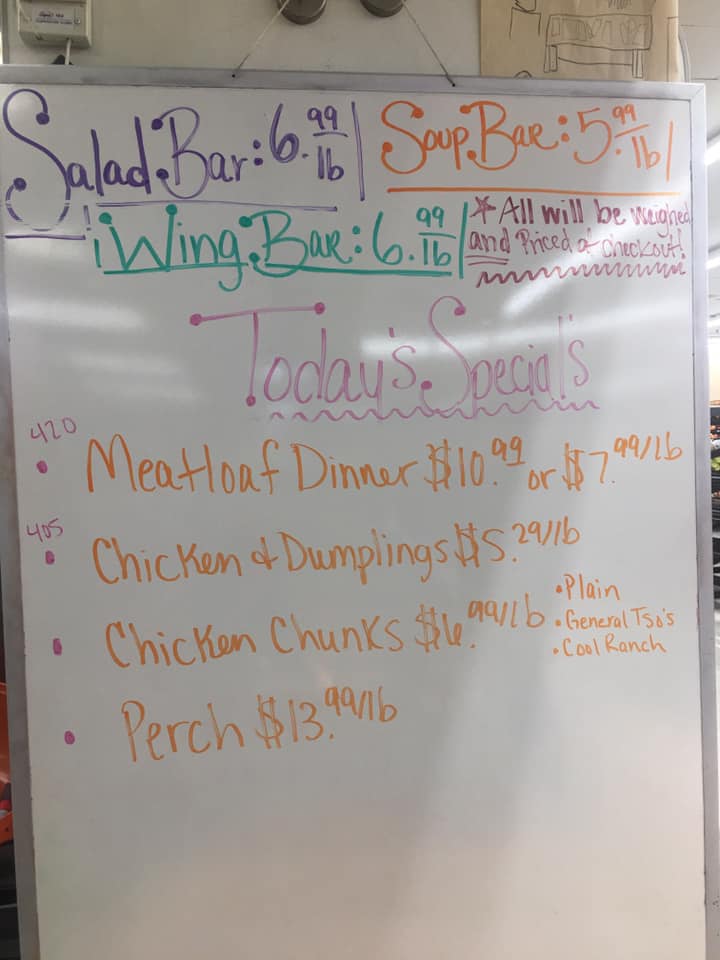 Salad Bar: 6.99/lb
Soup Bar: 5.99/lb
Wing Bar: 6.99/lb
* All will be weighed
and Priced at checkout!
Today's Special's
420
• Meatloaf Dinner $10.99 or $7.99/lb
405
• Chicken & Dumplings $5.29/lb
• Chicken Chunks $6.99/lb
• Plain
• General Tso's
• Cool Ranch
• Perch $13.99/lb